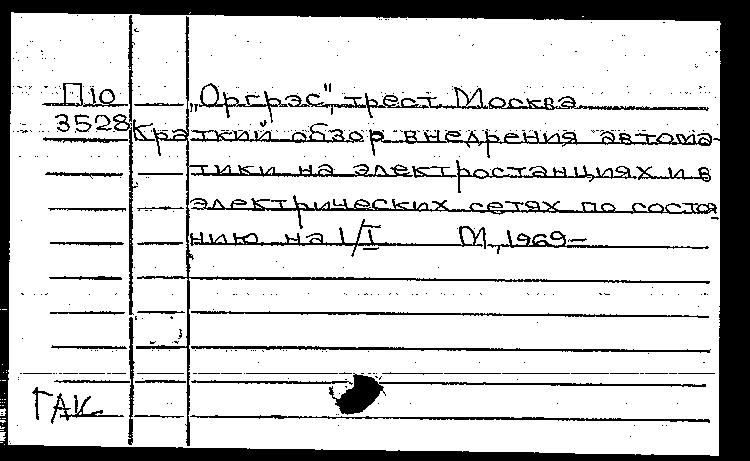 П10 „Оргрэс", трест. Москва
3528 Краткий обзор внедрения автома-
тики на электростанциях и в
электрических сетях по состоя
нию на 1/I М., 1969–
ГАК